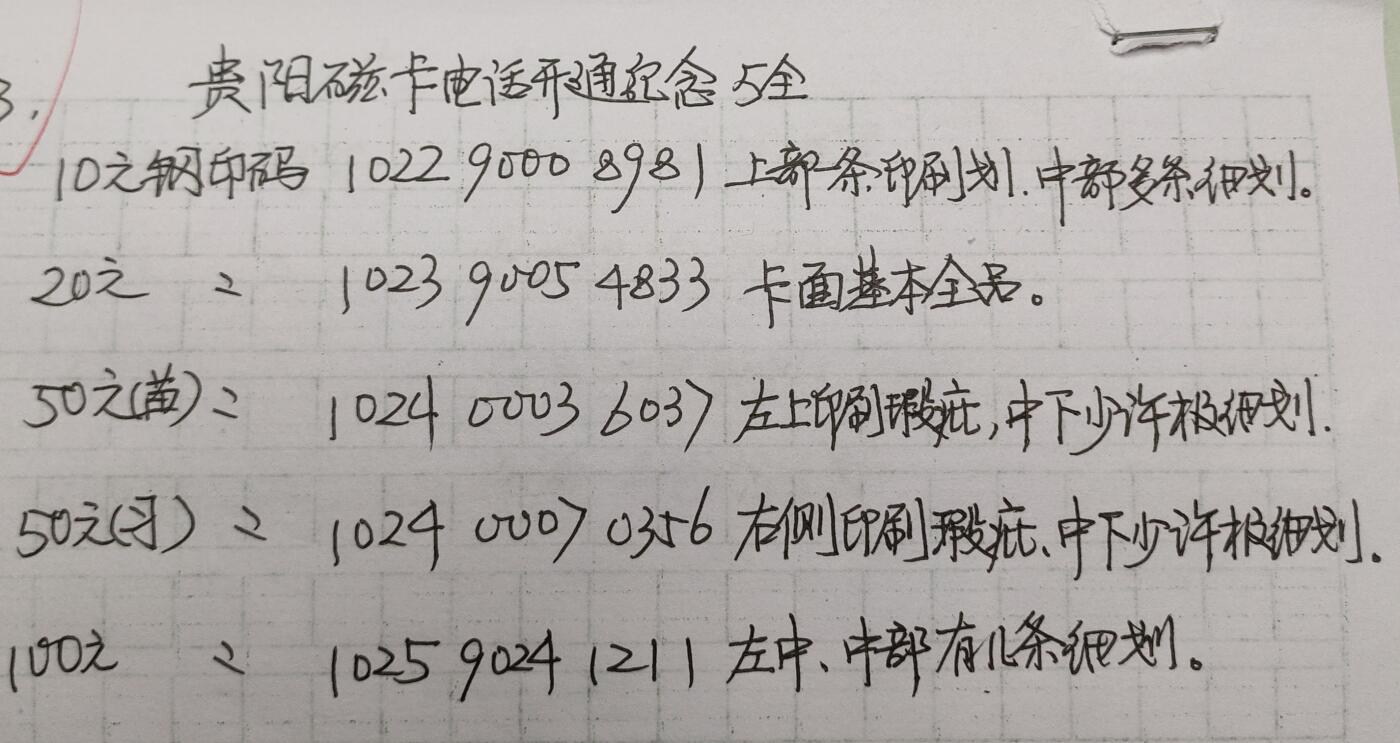 3.
贵阳磁卡电话开通纪念5全
10元钢印码 1022 9000 8981 上部一条印刷划.中部多条细划。
20元 〃 1023 9005 4833 卡面基本全品。
50元(黄)〃 1024 0003 6037 左上印刷瑕疵,中下少许极细划.
50元() 〃 1024 0007 0356 右侧印刷瑕疵、中下少许极细划.
100元 〃 1025 9024 1211 左中、中部有几条细划。